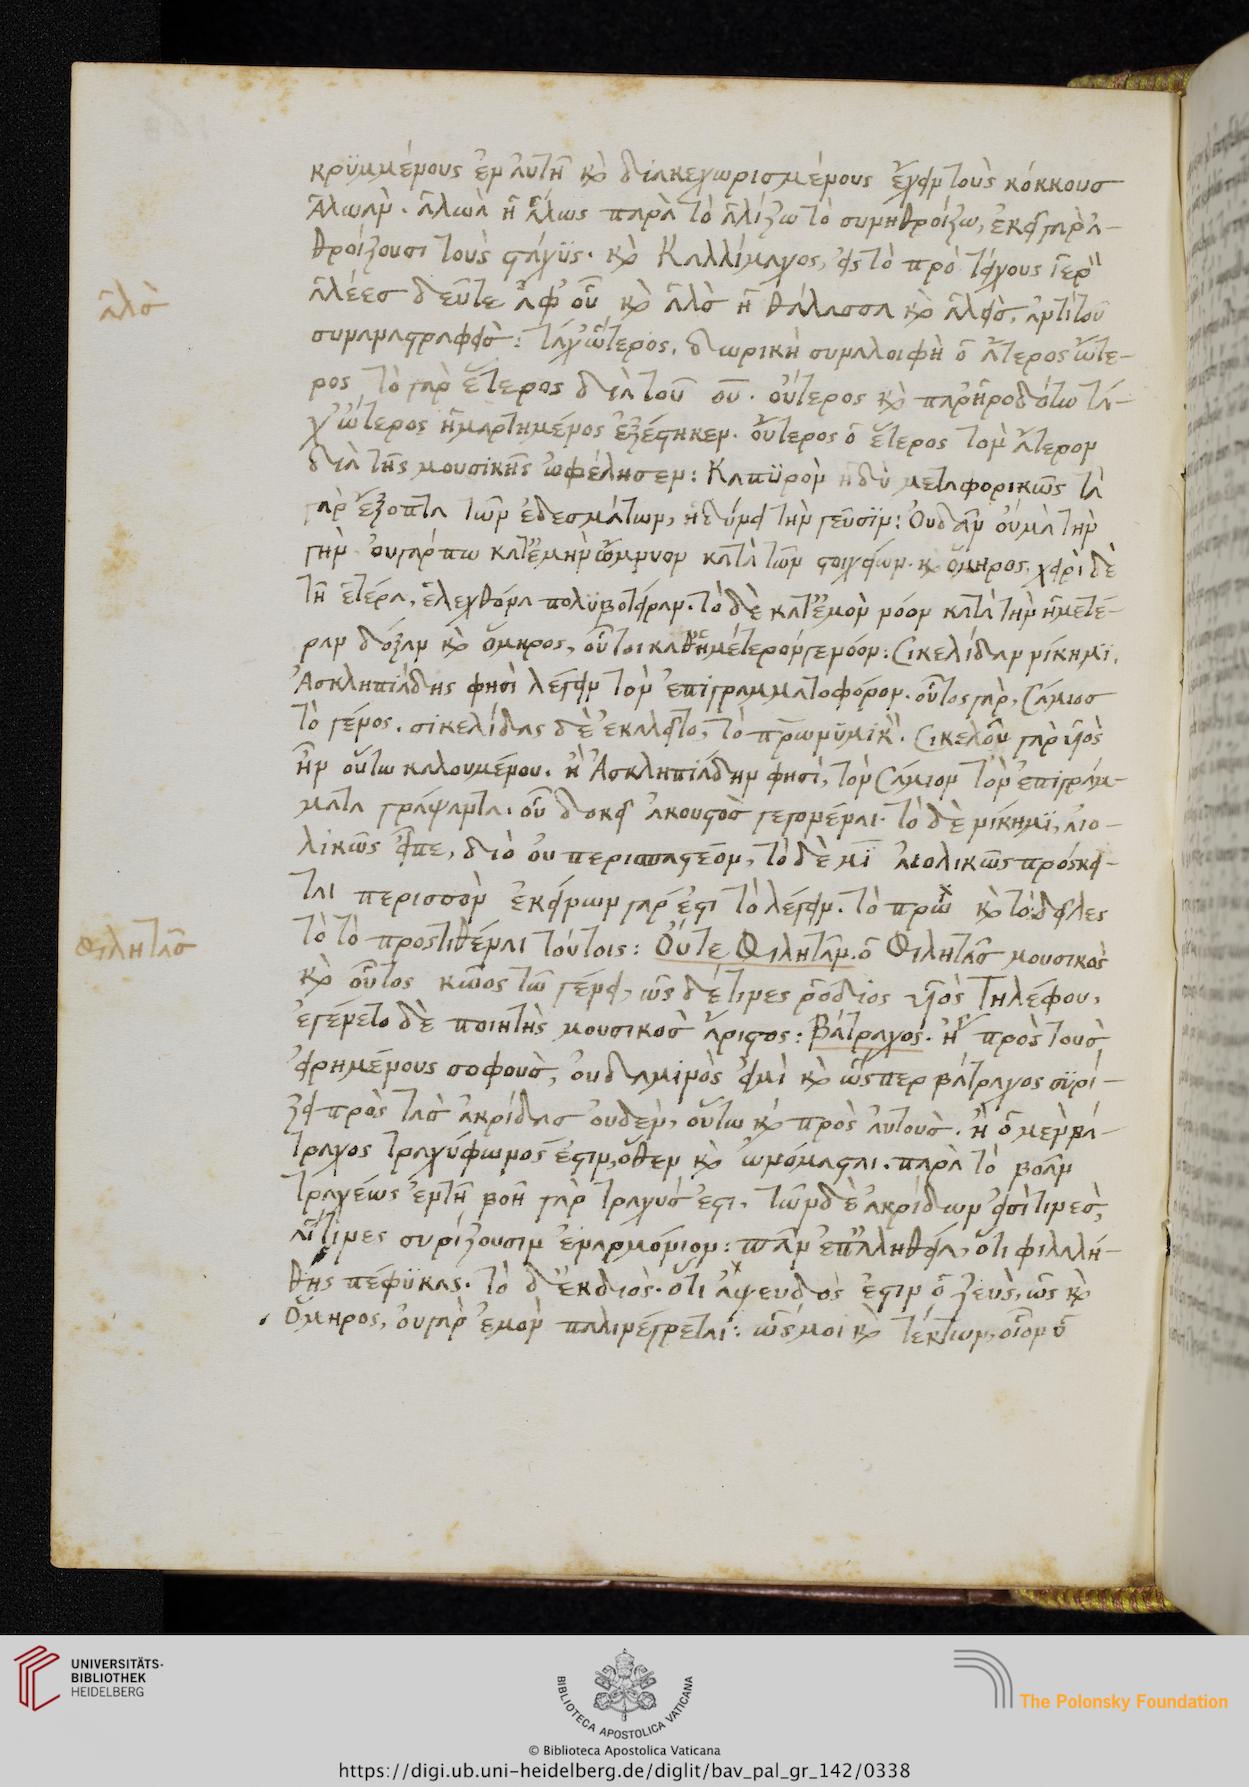 κρϋμμένους ἐν αυτῆ κ̀ διακεχωρισμένους ἔχειν τοὺς κόκκουσ
Ἅλωὰν. ἅλωὰ ἢ ἅλως παρὰ τὸ ἁλίζω τὸ συνηθροίζω, ἐκεῖ γαρ ἀ-
θροίζουσι τοὺς στάχϋς. κ̀ Καλλίμαχος, εἰς τὸ πρὸ
ἁλέεσ δεῦτε ἀφ' οὗ κ̀ ἁλὸ ἡ θάλασσα κ̀ ἁλεὸ. ἀντὶ τοῦ
ἁλὸ
συναναστραφεὸ: δωρικὴ συναλοιφὴ ὁ ἅτερος ὥτε-
ρος τὸ γὰρ ἕτερος διὰ τοῦ ου. οὕτερος κ̀ παρ' ἡροδότω τά-
χ' ὥτερος ἡμαρτημένος ἐξέστηκεν. οὕτερος ὁ ἕτερος τὸν ἅτερον
διὰ τῆς μουσικῆς ὠφέλησεν: Καπϋρὸν ἡδὺ μεταφορικῶς τὰ
γὰρ ἔξοπτα τῶν ἐδεσμάτων, ἡδύνει τὴν γεῦσϊν: Ὀυδᾶν ὀυμὰ τὴν
γὴν ὀυγάρπω κατ' ἐμὴν ὤμνυον κατὰ τῶν στοιχείων. κ̀ ὅμηρος, χειρὶ δὲ
τῆ ἑτέρα, ἕλε χθόνα πολϋβοτείραν. τὸ δὲ κατ' ἐμὸν νόον κατὰ τὴν ἡμετέ-
ραν δόξαν κ̀ ὅμηρος, οὗτοι καθ' ἡμέτερόν γε νόον: Σικελίδαν νίκημϊ,
Ἀσκληπιάδης φησὶ λέγειν τὸν ἐπιγραμματοφόρον. οὗτος γὰρ, Σάμιοσ
τὸ γένος. σικελίδας δὲ ἐκαλεῖτο, τὸ πρωνϋμικ. Σικελοῦ γὰρ ὑιὸς
ἦν οὕτω καλουμένου. ἢ Ἀσκληπιάδην φησὶ, τὸν Σάμιον τὸν ἐπιγράμ-
ματα γράψαντα. οὗ δοκεῖ ἀκουστὸσ γεγονέναι. τὸ δὲ νίκημϊ, ἀιο-
λικῶς εἶπε, διὸ ὀυ περισπαστέον, τὸ δὲ μϊ ἀιολικῶς πρόσκει-
ται περισσὸν ἐκείνων γάρ ἐστι τὸ λέγειν. τὸ πρω κ̀ τὸ δεῖλες
τὸ τὸ προστιθέναι τούτοις: Ὀύτε Φιλητᾶν. ὁ Φιλητᾶσ μουσικὸς
φιλητᾶσ
κ̀ οὗτος κῶος τῶ γένει, ὡς δέ τινες ῥόδιος ὑιὸς Τηλέφου,
ἐγένετο δὲ ποιητὴς μουσικὸσ ἄριστος: Βάτραχος. ἢ πρὸς τουσ
ἐιρημένους σοφουσ, ὀυδαμινὸς ἐιμὶ κ̀ ὥσπερ βάτραχος σϋρί-
ζει πρὸς τασ ἀκρίδασ ὀυδὲν, οὕτω κ̀ πρὸς ἀυτουσ. ἢ ὁ μὲν βά-
τραχος τραχύφωνος ἐστιν, ὅθεν κ̀ ὠνόμασται. παρὰ τὸ βοᾶν
τραχέως ἐν τῆ βοῆ γὰρ τραχυσ ἐστι. τῶν δὲ ἀκρίδων ἐισὶ τινεσ,
αἵτινες συρίζουσιν ἐναρμόνιον: πᾶν ἐπ' ἀληθεία, ὅτι φιλαλή-
θης πέφϋκας. τὸ δ' ἐκ διὸς. ὅτι ἀψευδὸς ἐστιν ὁ ζεὺς, ὡς κ̀
Ὅμηρος, ὀυγὰρ ἐμὸν παλινάγρετον: ὥς μοι κ̀ τέκτων, οἷον
UNIVERSITÄTS-
BIBLIOTHEK
HEIDELBERG
BIBLIOTECA APOSTOLICA VATICANA
The Polonsky Foundation
© Biblioteca Apostolica Vaticana
https://digi.ub.uni-heidelberg.de/diglit/bav_pal_gr_142/0338